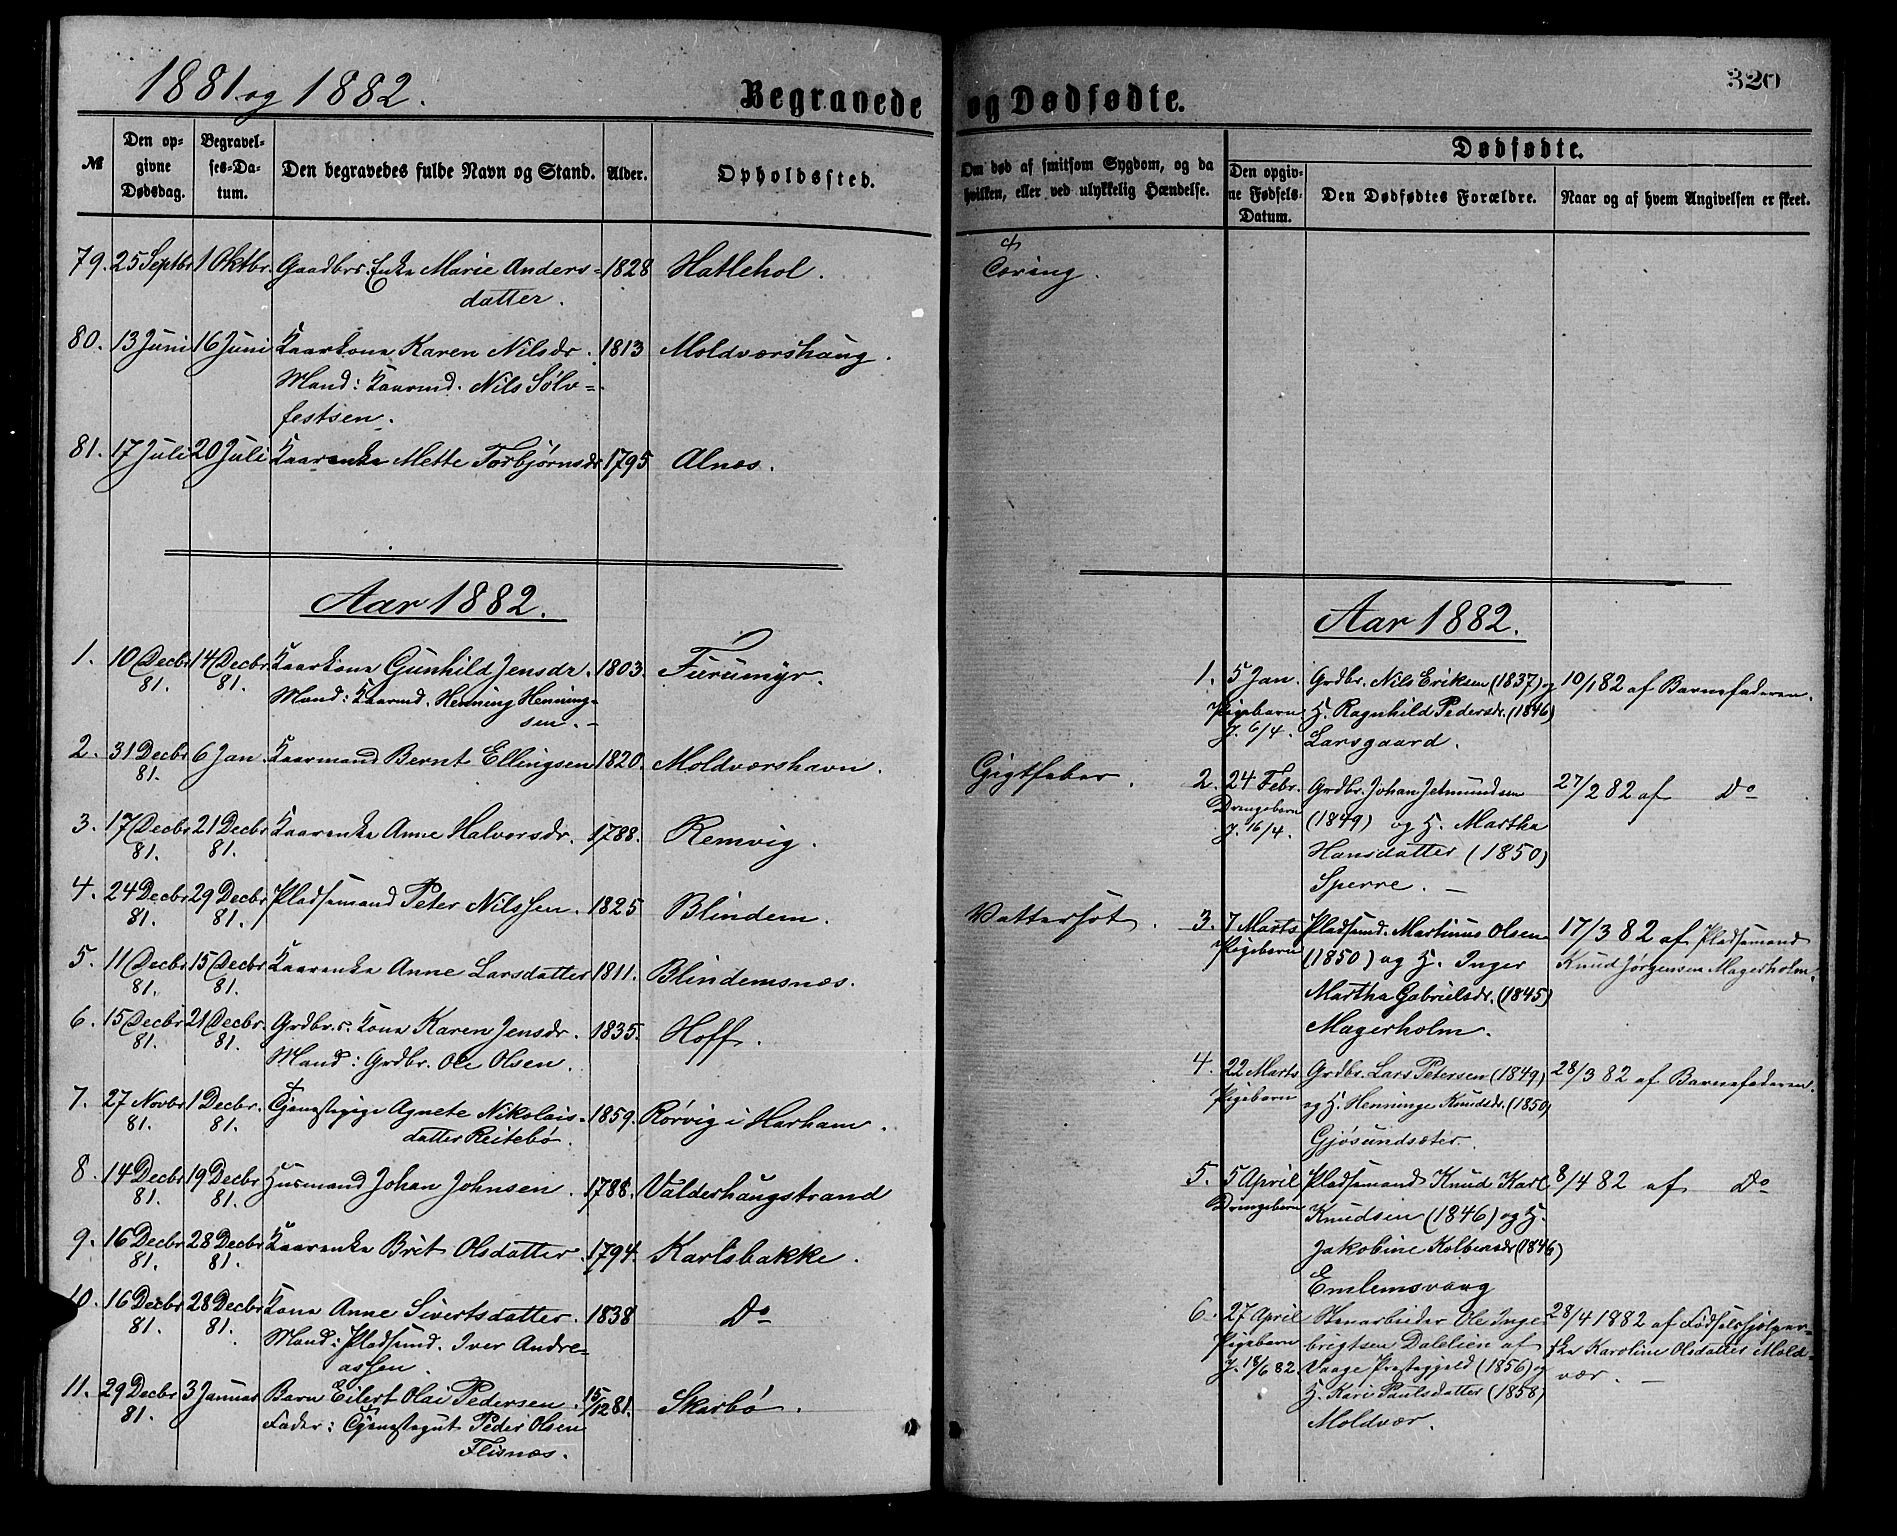 1881 og 1882.
Begravede
№
Den op-
givne
Dødsdag.
Begravel-
ses-Da-
tum.
Den begravedes fulde Navn og Stand.
Alder.
Opholdssted.
79. 25 Septbr 1 Oktbr. Gaadbrs. Enke Marie Anders- 1828 Hatlehol.
datter.
80. 13 Juni 16 Juni Kaarkone Karen Nilsdr. 1813 Moldværshaug.
Mand: Kaarmd. Nils Sølv-
festsen.
81. 17 Juli 20 Juli Kaarenke Mette Torbjørnsdr 1795 Alnes.
Aar 1882.
1. 10 Decbr 14 Decbr. Kaarkone Gunhild Jensdr. 1803. Furumyr.
81. 81. Mand: Kaarmd. Henning Henning-
sen. –
2. 31 Decbr 6 Jan. Kaarmand Bernt Ellingsen 1820. Moldværshavn.
81.
3. 17 Decbr 21 Decbr Kaarenke Anne Halvorsdr. 1788. Remvig.
81. 81.
4. 24 Decbr 29 Decbr Pladsemand Peter Nilssen. 1825 Blindem.
81. 81.
5. 11 Decbr 15 Decbr Kaarenke Anne Larsdatter 1811. Blindemsnæs.
81. 81.
6. 15 Decbr 21 Decbr. Grdbr.s. Kone Karen Jensdr. 1835. Hoff.
81. 81. Mand: Grdbr. Ole Olsen.
7. 27 Novbr 1 Decbr. Tjenestepige Agnete Nikolais- 1859. Rørvig i Harham.
81. 81. datter Reitebø.
8. 14 Decbr 19 Decbr Husmand Johan Johnsen. 1788. Valderhaugstrand
81. 81.
9. 16 Decbr 28 Decbr Kaarenke Brit Olsdatter. 1794. Karlsbakke.
81. 81.
10. 16 Decbr 28 Decbr Kone Anne Sivertsdatter. 1838 Do
81. 81. Mand: Pladsmd. Iver Andre-
assen.
11. 29 Decbr 3 Januar Barn Eilert Olai Pedersen. 15/1281. Skarbø.
81. Fader: Tjenestegut Peder Olsen
Flisnæs.
320
og Dødfødte.
Om død af smitsom Sygdom, og da
hvilken, eller ved ulykkelig Hændelse.
Dødfødte.
Den opgiv-
ne Fødsels-
Datum.
Den Dødfødtes Forældre.
Naar og af hvem Angivelsen er skeet.
Tæring.
Aar 1882.
1. 5 Jan. Grdbr. Nils Eriksen (1837) og 10/1 82 af Barnefaderen.
Pigebarn H. Ragnhild Pedersdr. (1846)
J. 6/4. Larsgaard.
Gigtfeber.
2. 24 Febr. Grdbr. Johan Jetmundsen 27/2 82 af Do
Drengebarn (1849) og H. Martha
J. 16/4. Hansdatter (1850)
Sperre. –
Vattersot.
3. 7 Marts Pladsmd. Martinus Olsen 17/3 82 af Pladsemand
Pigebarn (1850) og H. Inger Knud Jørgensen Magerholm.
Martha Gabrielsdr. (1845)
Magerholm.
4. 22 Marts Grdbr. Lars Petersen (1849) 28/3 82 af Barnefaderen.
Pigebarn og H. Henninge Knudsdr. (1850)
Gjøsundsæter.
5. 5 April Pladsemand Knud Karl 8/4 82 af Do
Drengebarn Knudsen (1846) og H.
Jakobine Kolbensdr (1846)
Emlemsvaag
6. 27 April Stenarbeider Ole Inge- 28/4 1882 af Fødselshjelper-
Pigebarn brigtsen Dalelien af ske Karoline Olsdatter Mold-
J. 18/6 82. Vaage Præstegjeld (1856) og vær. –
H. Kari Paulsdatter (1858)
Moldvær.